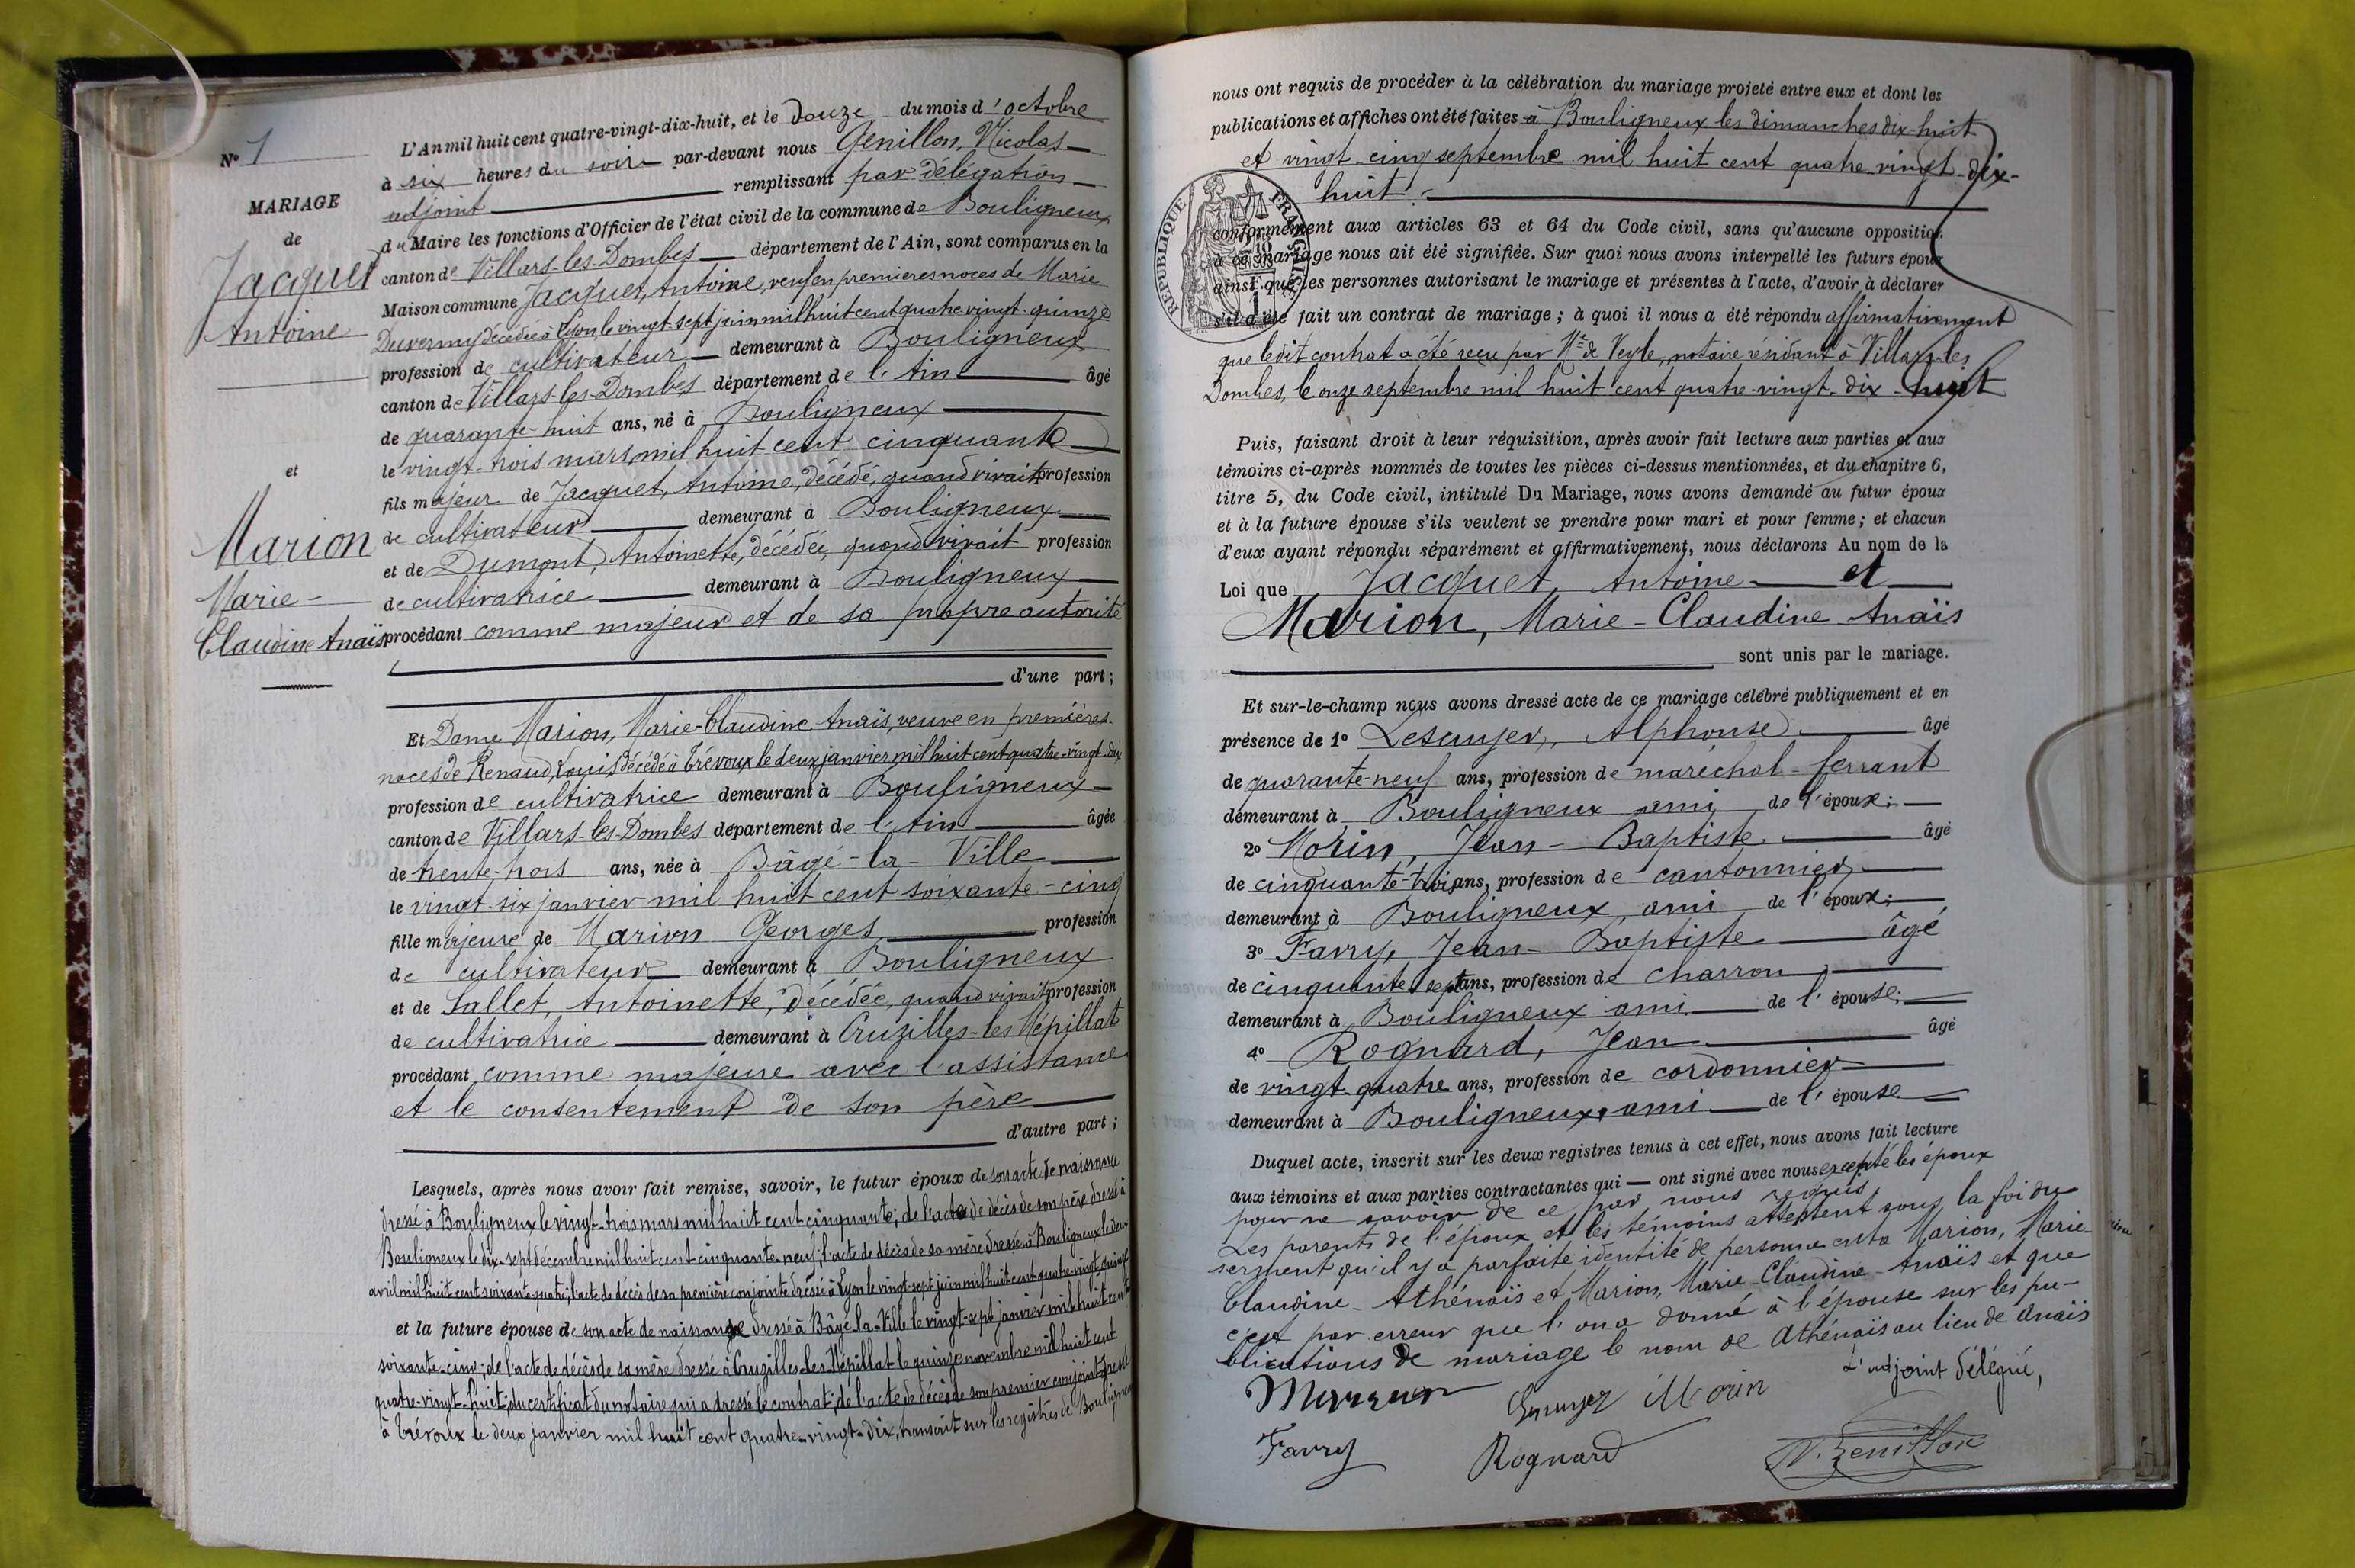 N° 1
MARIAGE
de
Jacquet
Antoine
et
Marion
Marie-
Claudine Anaïs
L'An mil huit cent quatre-vingt-dix-huit, et le douze du mois d'octobre
à six heures du soir par-devant nous Genillon, Nicolas
adjoint remplissant par délégation
du Maire les fonctions d'Officier de l'état civil de la commune de Bouligneux
canton de Villars-les-Dombes département de l'Ain, sont comparus en la
Maison commune Jacquet, Antoine, veuf en premières noces de Marie
Duvernay décédée à Lyon le vingt-sept juin mil huit cent quatre vingt-quinze
profession de cultivateur demeurant à Bouligneux
canton de Villars-les-Dombes département de l'Ain âgé
de quarante-huit ans, né à Bouligneux
le vingt-trois mars mil huit cent cinquante
fils majeur de Jacquet, Antoine, décédé, quand vivait profession
de cultivateur demeurant à Bouligneux
et de Dumont, Antoinette, décédée, quand vivait profession
de cultivatrice demeurant à Bouligneux
procédant comme majeur et de sa propre autorité
d'une part ;
Et Dame Marion, Marie-Claudine Anaïs, veuve en premières
noces de Renaud, Louis décédé à Trévoux le deux janvier mil huit cent quatre-vingt-dix
profession de cultivatrice demeurant à Bouligneux
canton de Villars-les-Dombes département de l'Ain âgée
de trente-trois ans, née à Bâgé-la-Ville
le vingt-six janvier mil huit cent soixante-cinq
fille majeure de Marion Georges profession
de cultivateur demeurant à Bouligneux
et de Sallet, Antoinette, décédée, quand vivait profession
de cultivatrice demeurant à Cruzilles-les-Mépillat
procédant comme majeure avec l'assistance
et le consentement de son père
d'autre part ;
Lesquels, après nous avoir fait remise, savoir, le futur époux de son acte de naissance
dressé à Bouligneux le vingt-trois mars mil huit cent cinquante; de l'acte de décès de son père dressé à
Bouligneux le dix-sept décembre mil huit cent cinquante-neuf; l'acte de décès de sa mère dressé à Bouligneux le deux
avril mil huit cent soixante-quatre; l'acte de décès de sa première conjointe dressé à Lyon le vingt-sept juin mil huit cent quatre-vingt-quinze
et la future épouse de son acte de naissance dressé à Bâgé-la-Ville le vingt-sept janvier mil huit cent
soixante-cinq; de l'acte de décès de sa mère dressé à Cruzilles-les-Mépillat le quinze novembre mil huit cent
quatre-vingt-huit; du certificat du notaire qui a dressé le contrat; de l'acte de décès de son premier conjoint dressé
à Trévoux le deux janvier mil huit cent quatre-vingt-dix, transcrit sur les registres de Bouligneux
nous ont requis de procéder à la célébration du mariage projeté entre eux et dont les
publications et affiches ont été faites à Bouligneux les dimanches dix-huit
et vingt-cinq septembre mil huit cent quatre-vingt-dix-
huit
RÉPUBLIQUE FRANÇAISE
conformément aux articles 63 et 64 du Code civil, sans qu'aucune opposition
à ce mariage nous ait été signifiée. Sur quoi nous avons interpellé les futurs époux
ainsi que les personnes autorisant le mariage et présentes à l'acte, d'avoir à déclarer
s'il a été fait un contrat de mariage ; à quoi il nous a été répondu affirmativement
que ledit contrat a été reçu par Me de Veyle, notaire résidant à Villars-les
Dombes, le onze septembre mil huit cent quatre-vingt-dix-huit
Puis, faisant droit à leur réquisition, après avoir fait lecture aux parties et aux
témoins ci-après nommés de toutes les pièces ci-dessus mentionnées, et du chapitre 6,
titre 5, du Code civil, intitulé Du Mariage, nous avons demandé au futur époux
et à la future épouse s'ils veulent se prendre pour mari et pour femme ; et chacun
d'eux ayant répondu séparément et affirmativement, nous déclarons Au nom de la
Loi que Jacquet, Antoine et
Marion, Marie-Claudine Anaïs
sont unis par le mariage.
Et sur-le-champ nous avons dressé acte de ce mariage célébré publiquement et en
présence de 1° Lesauyer, Alphonse âgé
de quarante-neuf ans, profession de maréchal-ferrant
demeurant à Bouligneux ami de l'époux;
2° Morin, Jean-Baptiste âgé
de cinquante-trois ans, profession de cantonnier
demeurant à Bouligneux, ami de l'époux;
3° Favry, Jean-Baptiste âgé
de cinquante-sept ans, profession de charron
demeurant à Bouligneux ami de l'épouse;
4° Rognard, Jean âgé
de vingt-quatre ans, profession de cordonnier
demeurant à Bouligneux, ami de l'épouse
Duquel acte, inscrit sur les deux registres tenus à cet effet, nous avons fait lecture
aux témoins et aux parties contractantes qui — ont signé avec nous excepté les époux
pour ne savoir de ce par nous requis,
Les parents de l'époux et les témoins attestent sous la foi du
serment qu'il y a parfaite identité de personne entre Marion, Marie-
Claudine-Athénaïs et Marion, Marie-Claudine-Anaïs et que
c'est par erreur que l'on a donné à l'épouse sur les pu-
blications de mariage le nom de Athénaïs au lieu de Anaïs
L'adjoint délégué,
Morin
Favry Rognard N. Genillon